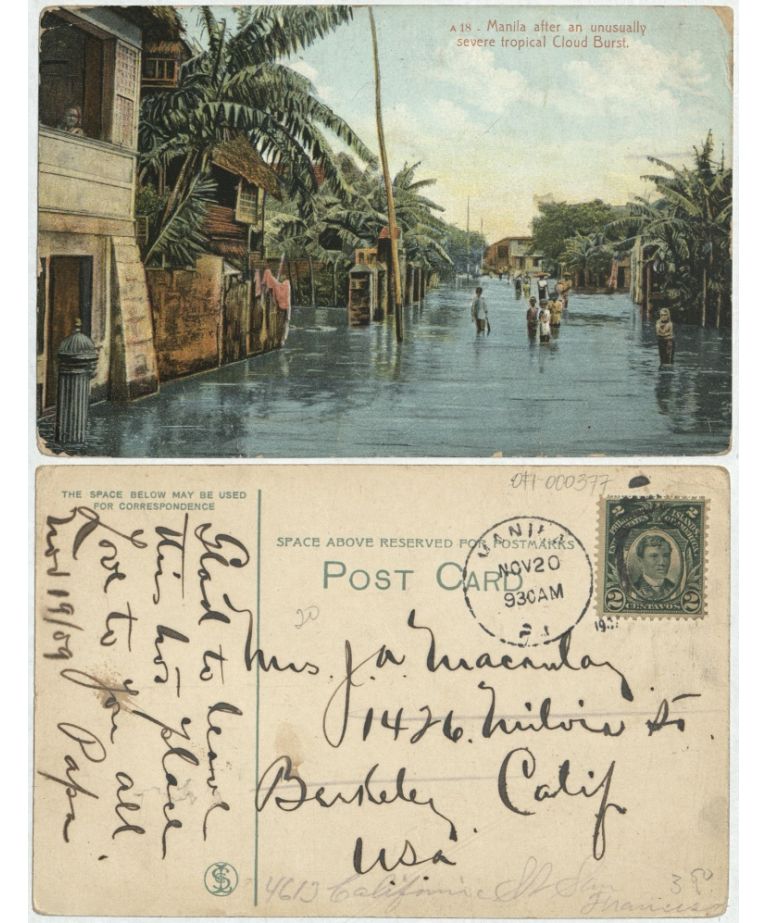 A 18 - Manila after an unusually
severe tropical Cloud Burst.
THE SPACE BELOW MAY BE USED
FOR CORRESPONDENCE
Glad to leave
this hot place
Love to you all
Papa
Nov 19/09
011-000377
SPACE ABOVE RESERVED FOR POSTMARKS
POST CARD
20
MANILA
NOV 20
930 AM
P.I.
2 2
PHILIPPINE ISLANDS
UNITED STATES OF AMERICA
2 CENTAVOS 2
Mrs. J. A. Macaulay
1426 Milvia St.
Berkeley Calif
USA
4613 California St San
Francisco